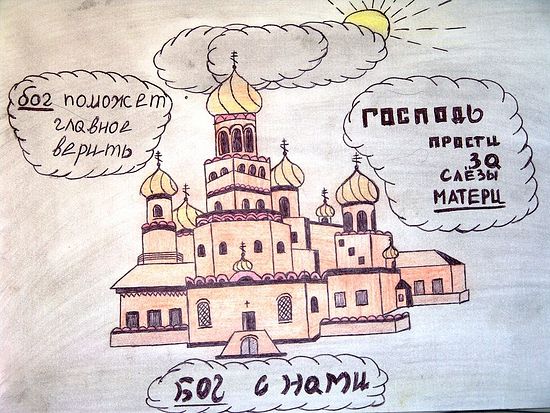 бог поможет
главное
верить
ГОСПОДЬ
прости
за
слёзы
матери
БОГ с нами